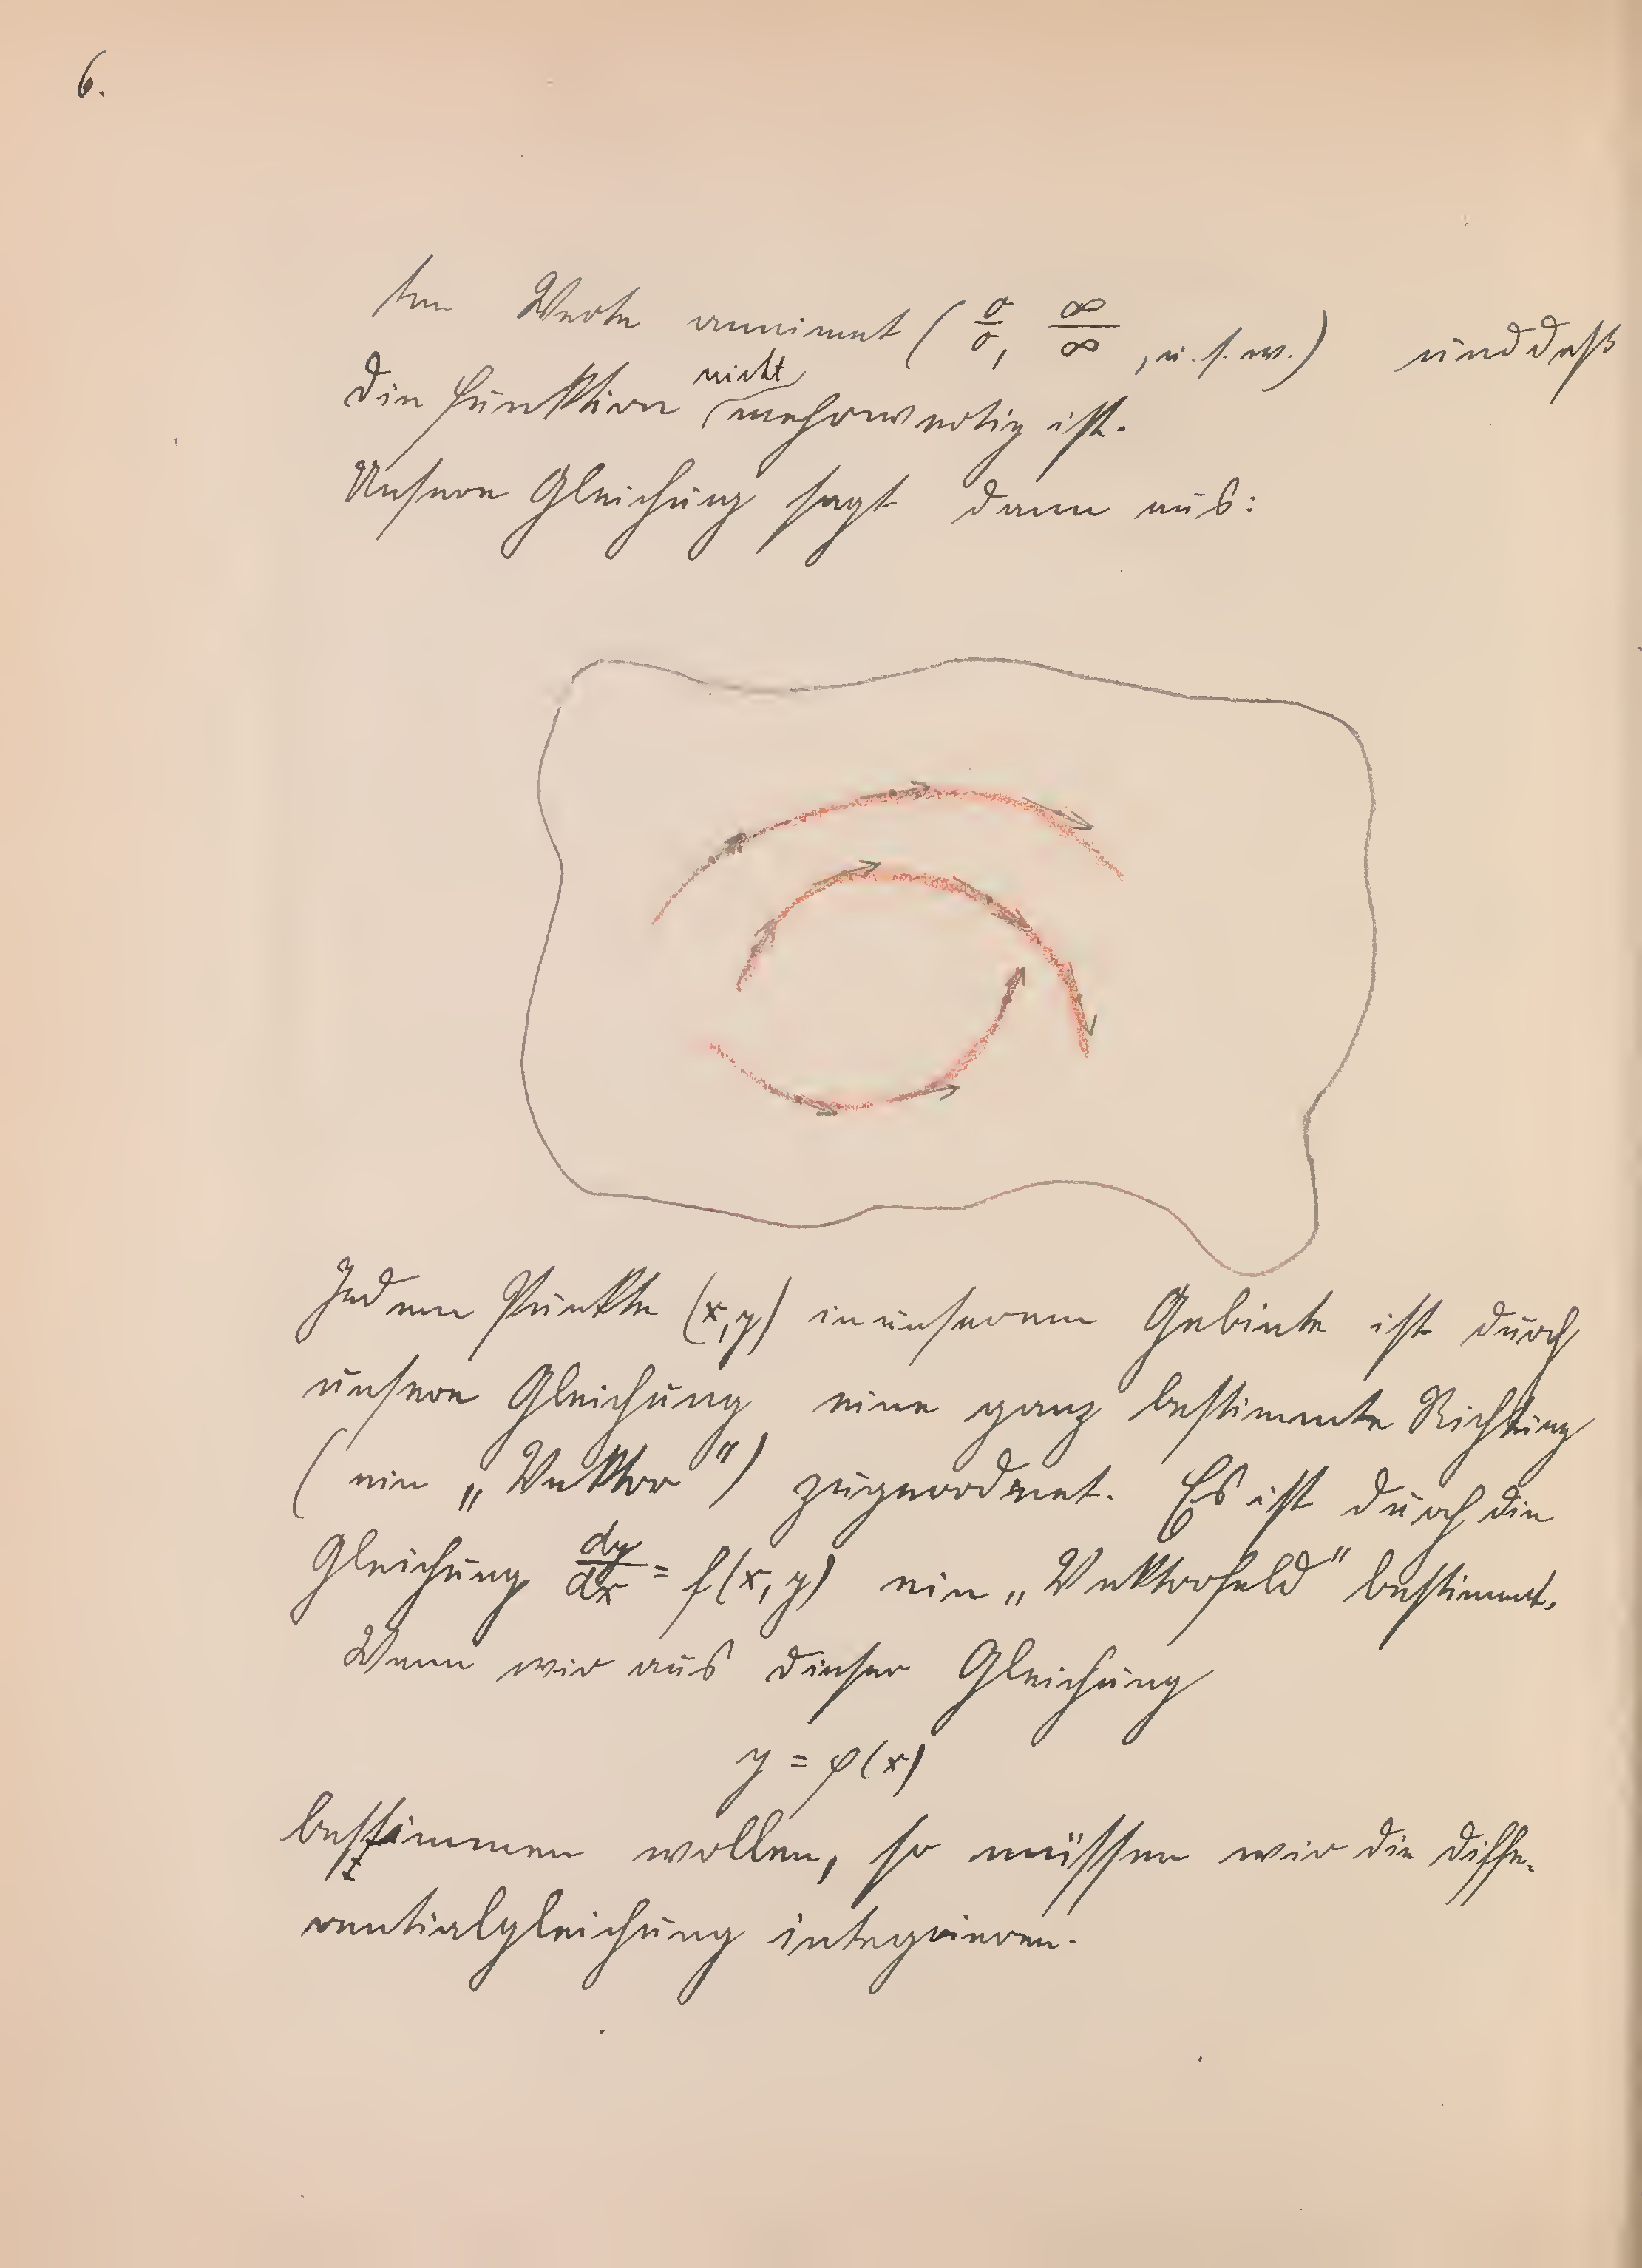 6.
ten Werte annimmt ( 0/0, ∞/∞, u. s. w. ) und daß
nicht
die Funktion mehrwertig ist.
Unsere Gleichung sagt dann aus:
Jedem Punkte (x,y) in unserem Gebiete ist durch
unsere Gleichung eine ganz bestimmte Richtung
( ein „Vektor") zugeordnet. Es ist durch die
Gleichung dy/dx = f(x,y) ein „Vektorfeld" bestimmt.
Wenn wir aus dieser Gleichung
y = φ(x)
bestimmen wollen, so müssen wir die Diffe-
rentialgleichung integrieren.